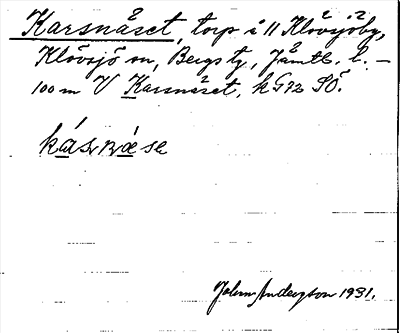 Karsnäset, torp i 11 Klövsjöby,
Klövsjö sn, Bergs tg, Jämtl. l. –
100 m V Karsnäset, k G72 SÖ.
Johan Anderzson 1931.